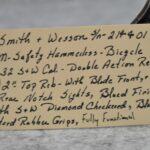 Smith & Wesson
M-Safety Hammerless - Bicycle
32 S&W Cal - Double Action Re
2" Top Rib - With Blade Front, +
Rear Notch Sights, Blued Fini
th Safty Diamond Checkered, Bl
Hard Rubber Grips, Fully Functional